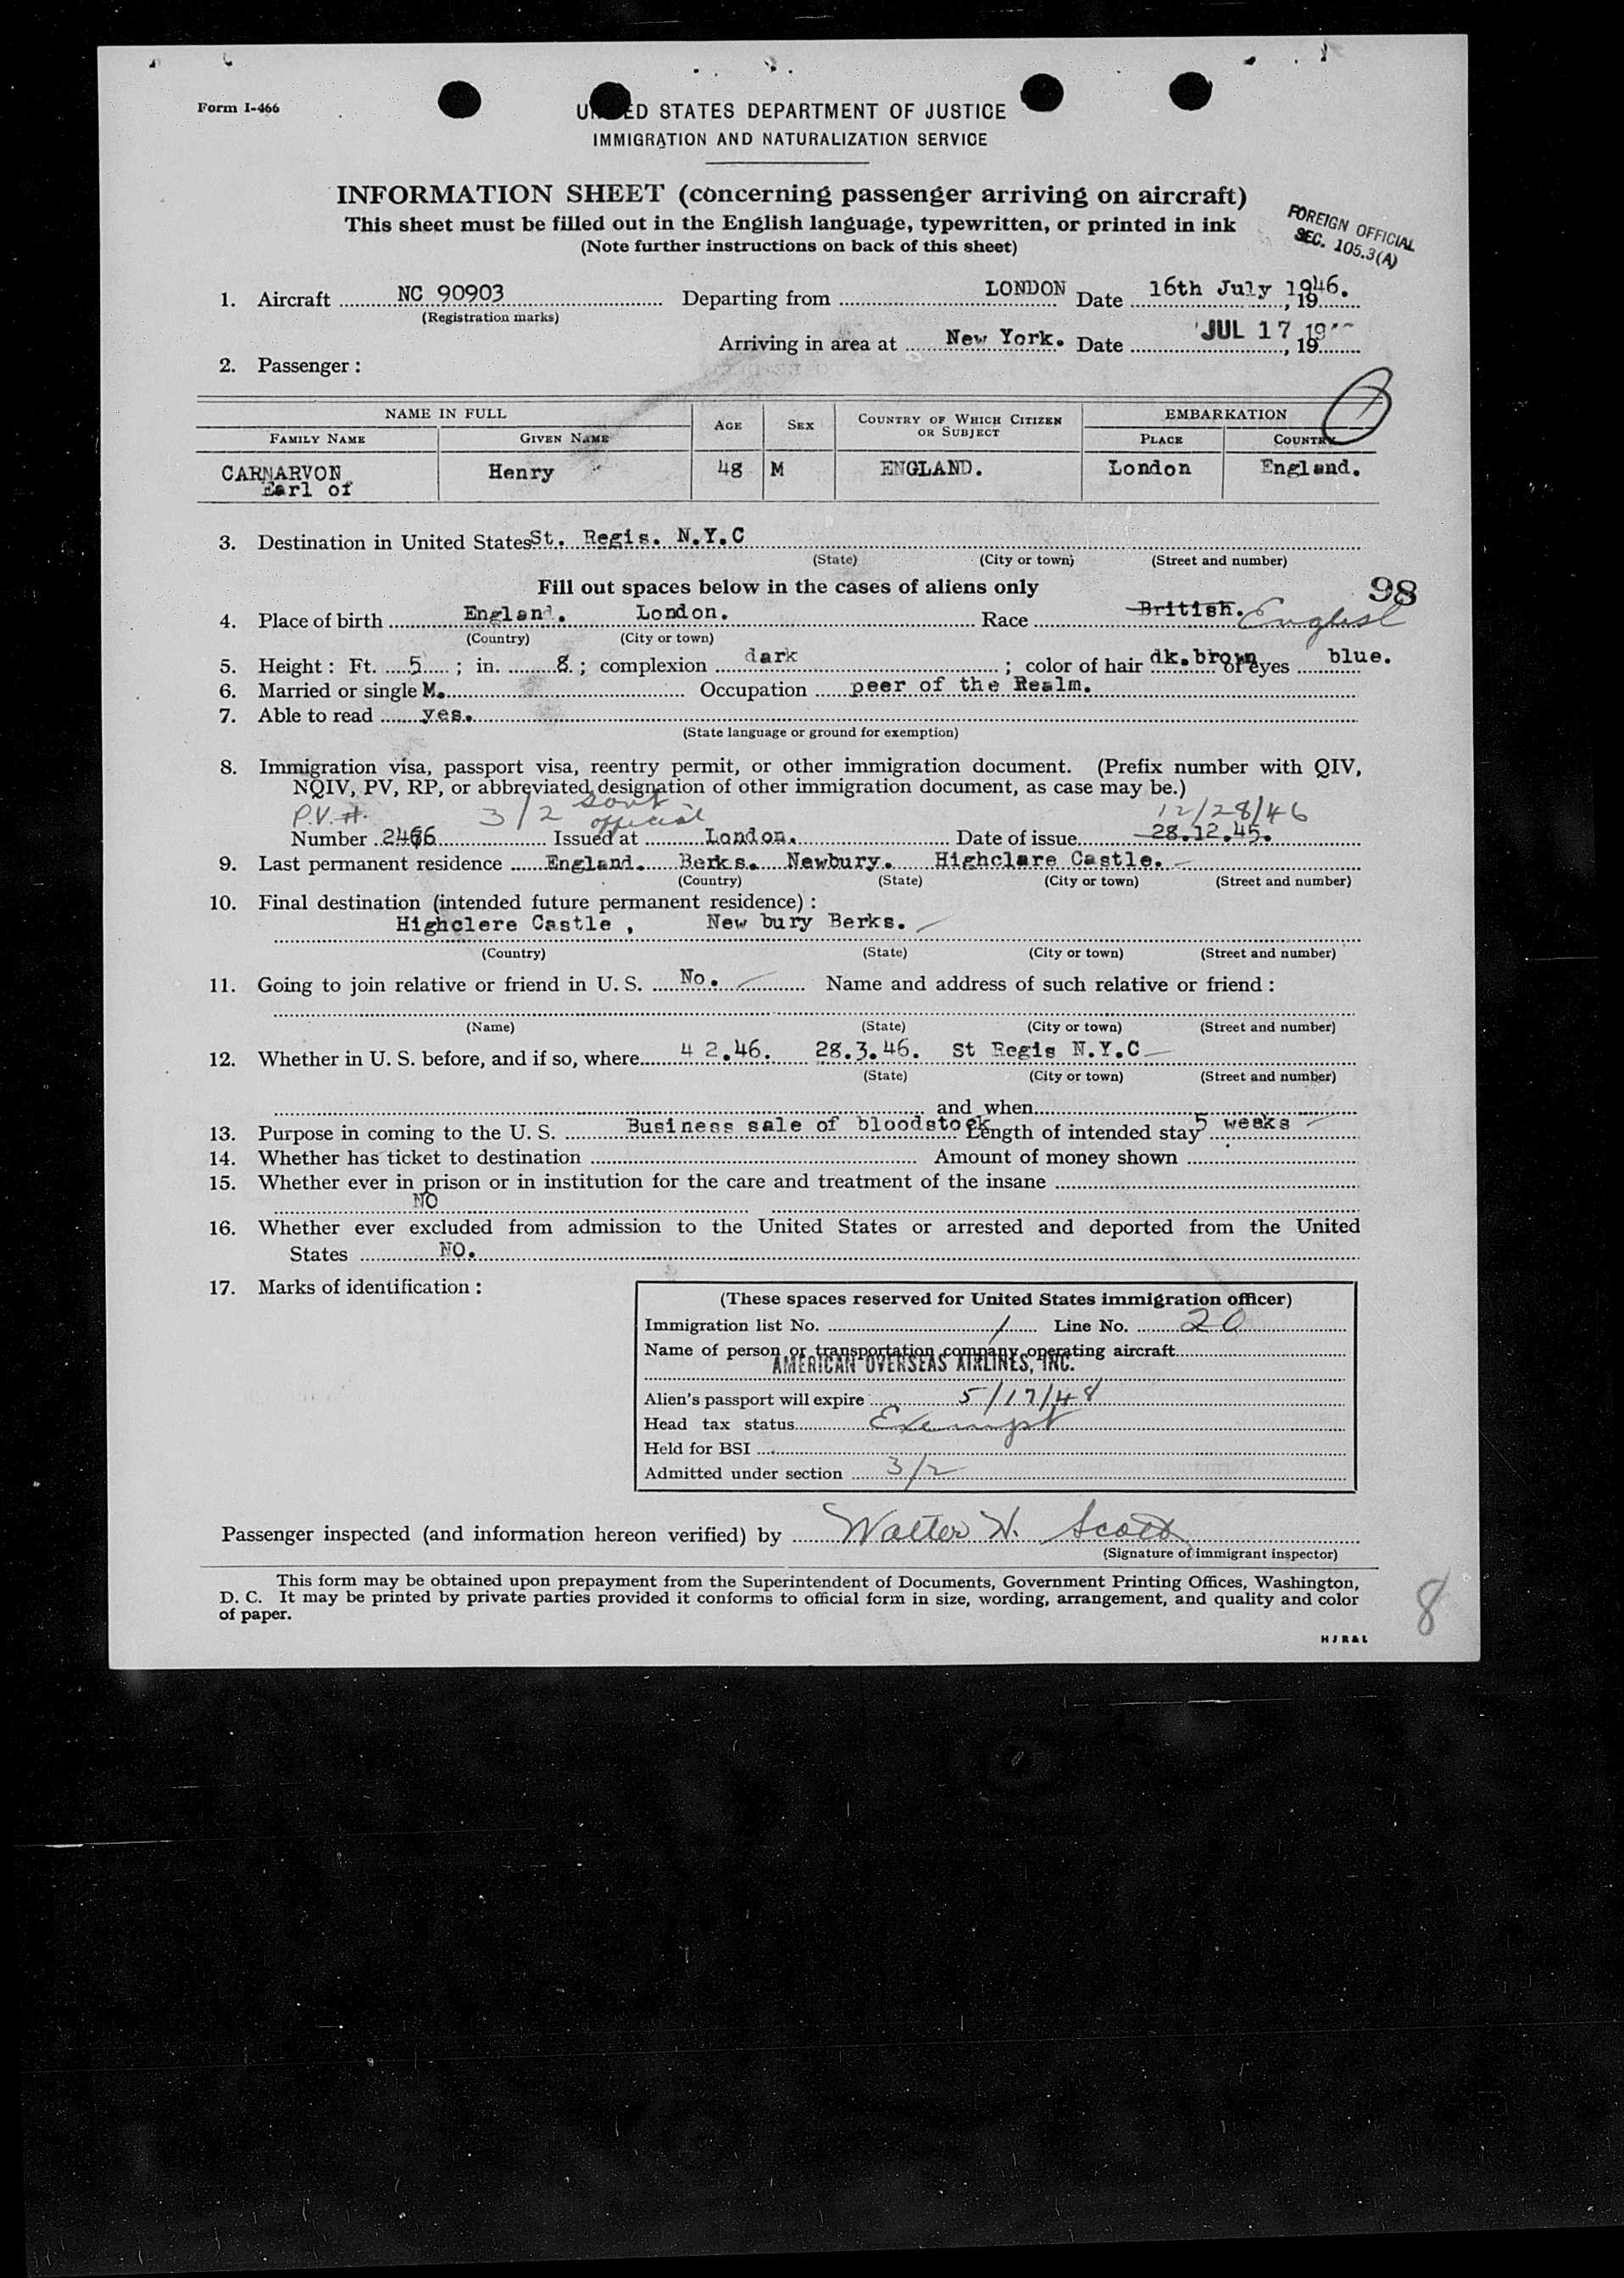 Form I-466
UNITED STATES DEPARTMENT OF JUSTICE
IMMIGRATION AND NATURALIZATION SERVICE
INFORMATION SHEET (concerning passenger arriving on aircraft)
This sheet must be filled out in the English language, typewritten, or printed in ink
(Note further instructions on back of this sheet)
FOREIGN OFFICIAL
SEC. 105.3(A)
1. Aircraft NC 90903 Departing from LONDON Date 16th July 1946. , 19
(Registration marks)
Arriving in area at New York. Date JUL 17 , 19
2. Passenger :
NAME IN FULL AGE SEX COUNTRY OF WHICH CITIZEN OR SUBJECT EMBARKATION
FAMILY NAME GIVEN NAME PLACE COUNTRY
CARNARVON Henry 48 M ENGLAND. London England.
Earl of
3. Destination in United States St. Regis. N.Y.C
(State) (City or town) (Street and number)
Fill out spaces below in the cases of aliens only
98
4. Place of birth England. London. Race British. English
(Country) (City or town)
5. Height : Ft. 5 ; in. 8 ; complexion dark ; color of hair dk. brown of eyes blue.
6. Married or single M. Occupation peer of the Realm.
7. Able to read yes.
(State language or ground for exemption)
8. Immigration visa, passport visa, reentry permit, or other immigration document. (Prefix number with QIV,
NQIV, PV, RP, or abbreviated designation of other immigration document, as case may be.)
P.V. #. 3/2 Govt official 12/28/46
Number 2466 Issued at London. Date of issue 28.12.45.
9. Last permanent residence England. Berks. Newbury. Highclare Castle.
(Country) (State) (City or town) (Street and number)
10. Final destination (intended future permanent residence) :
Highclere Castle , New bury Berks.
(Country) (State) (City or town) (Street and number)
11. Going to join relative or friend in U. S. No. Name and address of such relative or friend :
(Name) (State) (City or town) (Street and number)
12. Whether in U. S. before, and if so, where 4 2.46. 28.3.46. St Regis N.Y.C
(State) (City or town) (Street and number)
and when
13. Purpose in coming to the U. S. Business sale of bloodstock Length of intended stay 5 weeks
14. Whether has ticket to destination Amount of money shown
15. Whether ever in prison or in institution for the care and treatment of the insane
NO
16. Whether ever excluded from admission to the United States or arrested and deported from the United
States NO.
17. Marks of identification :
(These spaces reserved for United States immigration officer)
Immigration list No. 1 Line No. 20
Name of person or transportation company operating aircraft
AMERICAN OVERSEAS AIRLINES, INC.
Alien's passport will expire 5/17/48
Head tax status Exempt
Held for BSI
Admitted under section 3/2
Passenger inspected (and information hereon verified) by Walter H. Scott
(Signature of immigrant inspector)
This form may be obtained upon prepayment from the Superintendent of Documents, Government Printing Offices, Washington,
D. C. It may be printed by private parties provided it conforms to official form in size, wording, arrangement, and quality and color
of paper.
8
HJR&L